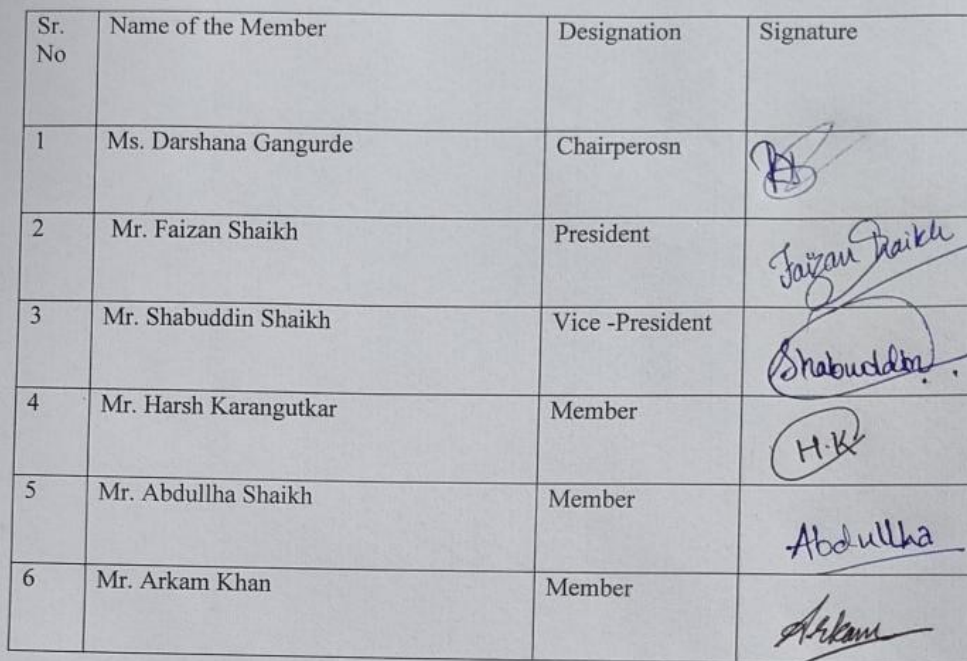 Sr. No Name of the Member Designation Signature
1 Ms. Darshana Gangurde Chairperosn
2 Mr. Faizan Shaikh President Faizan Shaikh
3 Mr. Shabuddin Shaikh Vice -President Shabuddin
4 Mr. Harsh Karangutkar Member H.K
5 Mr. Abdullha Shaikh Member Abdullha
6 Mr. Arkam Khan Member Arkam